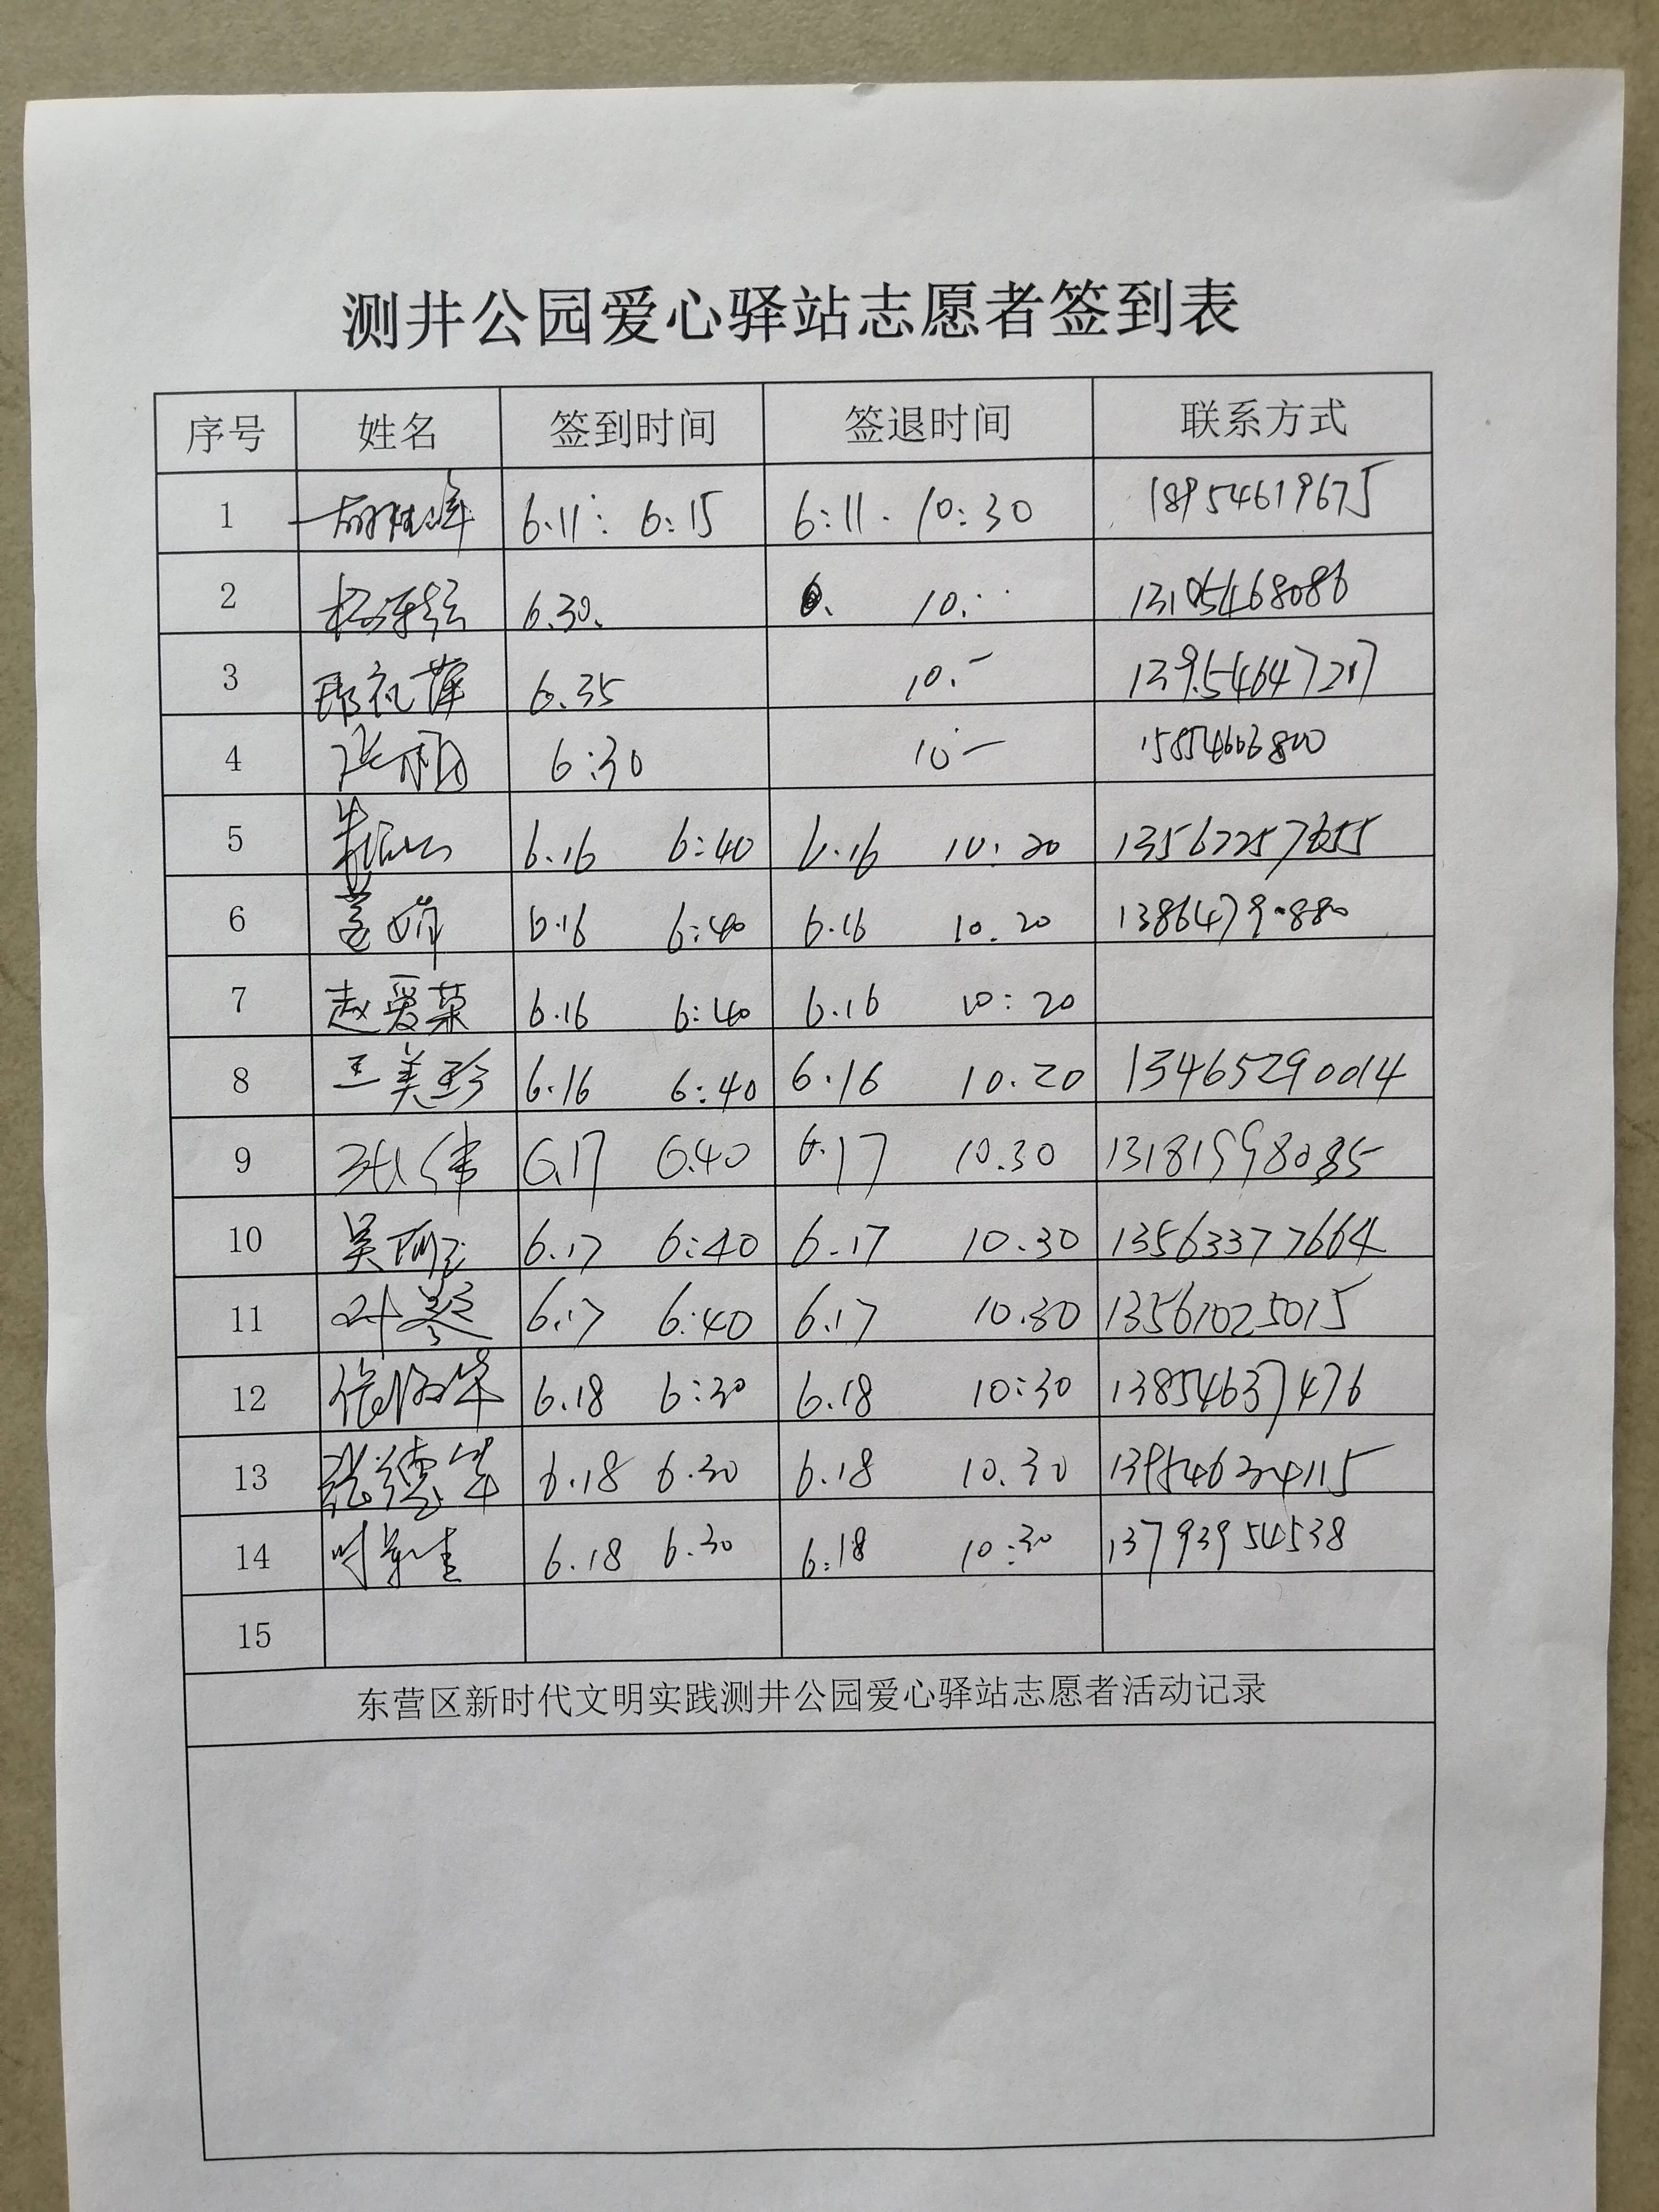 测井公园爱心驿站志愿者签到表
序号 姓名 签到时间 签退时间 联系方式
1 6.11: 6:15 6:11. 10:30 18954619675
2 6.30. 6. 10: 13105468086
3 6.35 10.- 13954647217
4 张 6:30 10- 15854606800
5 6.16 6:40 6.16 10:20 13562257655
6 6.16 6:40 6.16 10.20
7 赵爱荣 6.16 6:40 6.16 10:20
8 王美珍 6.16 6:40 6.16 10.20 13465290014
9 张伟 6.17 6.40 6.17 10.30 13181998035
10 吴丽 6.17 6:40 6.17 10.30 13563377664
11 叶 6.17 6:40 6.17 10.30 13561025015
12 6.18 6:30 6.18 10:30 13854637476
13 张德华 6.18 6.30 6.18 10.30 13954634115
14 6.18 6.30 6:18 10:30 13793954538
15
东营区新时代文明实践测井公园爱心驿站志愿者活动记录